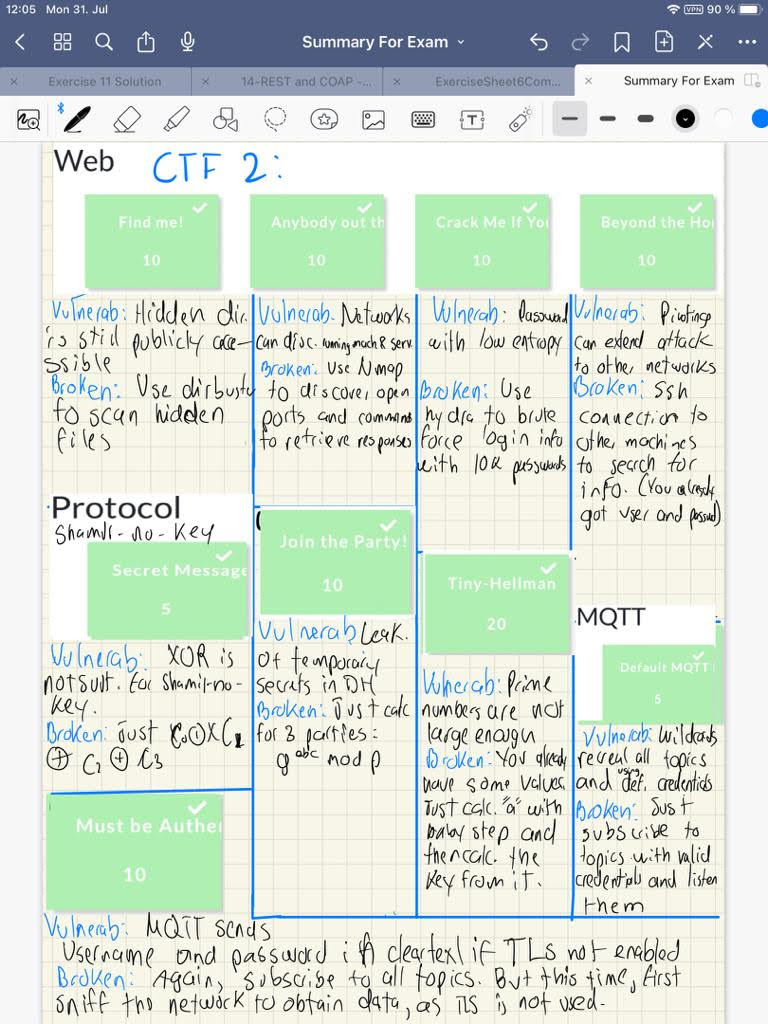 12:05 Mon 31. Jul
VPN 90 %
Summary For Exam
Exercise 11 Solution
14-REST and COAP -...
ExerciseSheet6Com...
Summary For Exam
Web CTF 2:
Find me!
10
Anybody out th
10
Crack Me If You
10
Beyond the Hor
10
Vulnerab: Hidden dir.
is still publicly acce-
ssible
Broken: Use dirbusty
to scan hidden
files
Vulnerab. Networks
can disc. running mach & serv.
Broken: Use Nmap
to discover open
ports and command
to retrieve responses
Vulnerab: Password
with low entropy
Broken: Use
hydra to brute
force login info
with 10k passwords
Vulnerab: Pivoting
can extend attack
to other networks
Broken: Ssh
connection to
other machines
to search for
info. (You already
got user and passwd)
Protocol
Shamir-no-Key
Secret Message
5
Vulnerab: XOR is
not suit. for Shamir-no-
key.
Broken: Just
⊕ C₂ ⊕ C₃
Join the Party!
10
Vulnerab Leak.
Of temporary
secrets in DH
Broken: Just calc
for 3 parties:
g^abc mod p
Tiny-Hellman
20
Vulnerab: Prime
numbers are not
large enough
Broken: You already
have some values.
Just calc. "a" with
baby step and
then calc. the
Key from it.
MQTT
Default MQTT
5
Vulnerab: Wildcards
reveal all topics
and using def. credentials
Broken: Just
subscribe to
topics with valid
credentials and listen
them
Must be Auther
10
Vulnerab: MQTT sends
Username and password in cleartext if TLS not enabled
Broken: Again, subscribe to all topics. But this time, first
sniff the network to obtain data, as TLS is not used.